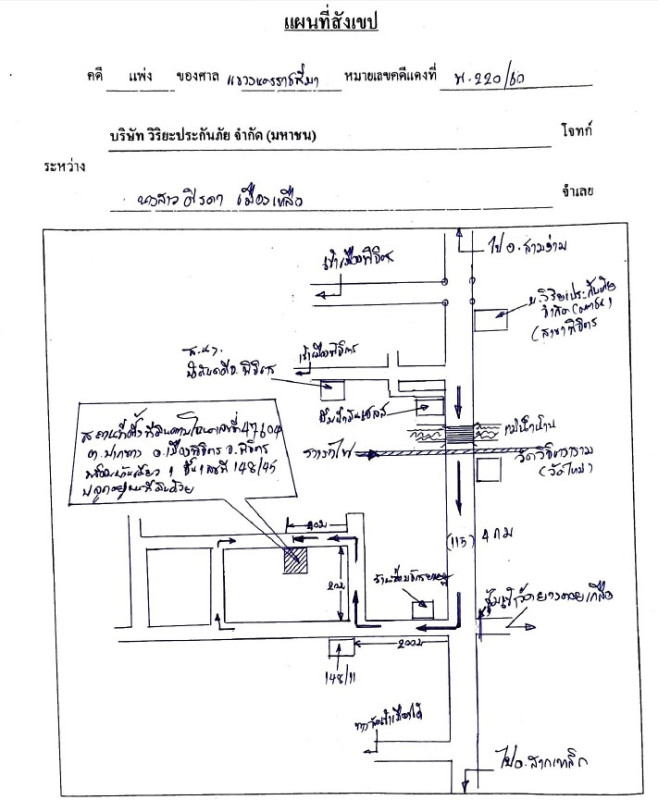 แผนที่สังเขป
คดี แพ่ง ของศาล แขวงนครราชสีมา หมายเลขคดีแดงที่ พ.220/60
บริษัท วิริยะประกันภัย จำกัด (มหาชน) โจทก์
ระหว่าง
นางสาว เมืองเหลือ จำเลย
ไป อ.สามง่าม
เข้าเมืองพิจิตร
บ.วิริยะประกันภัย
จำกัด (มหาชน)
(สาขาพิจิตร
เข้าเมืองพิจิตร
พิจิตร
ปั๊มน้ำมันเชลล์
แม่น้ำน่าน
สถานที่ตั้งที่ดินตามโฉนดเลขที่ 47604
ต.ปากทาง อ.เมืองพิจิตร จ.พิจิตร
พร้อมบ้านเดี่ยว 1 ชั้น เลขที่ 148/45
ปลูกอยู่บนที่ดินด้วย
ทางรถไฟ
วัดวิจิตราราม
(วัดใหม่)
(115) 4 กม
200ม
148/11
ไป อ.สากเหล็ก